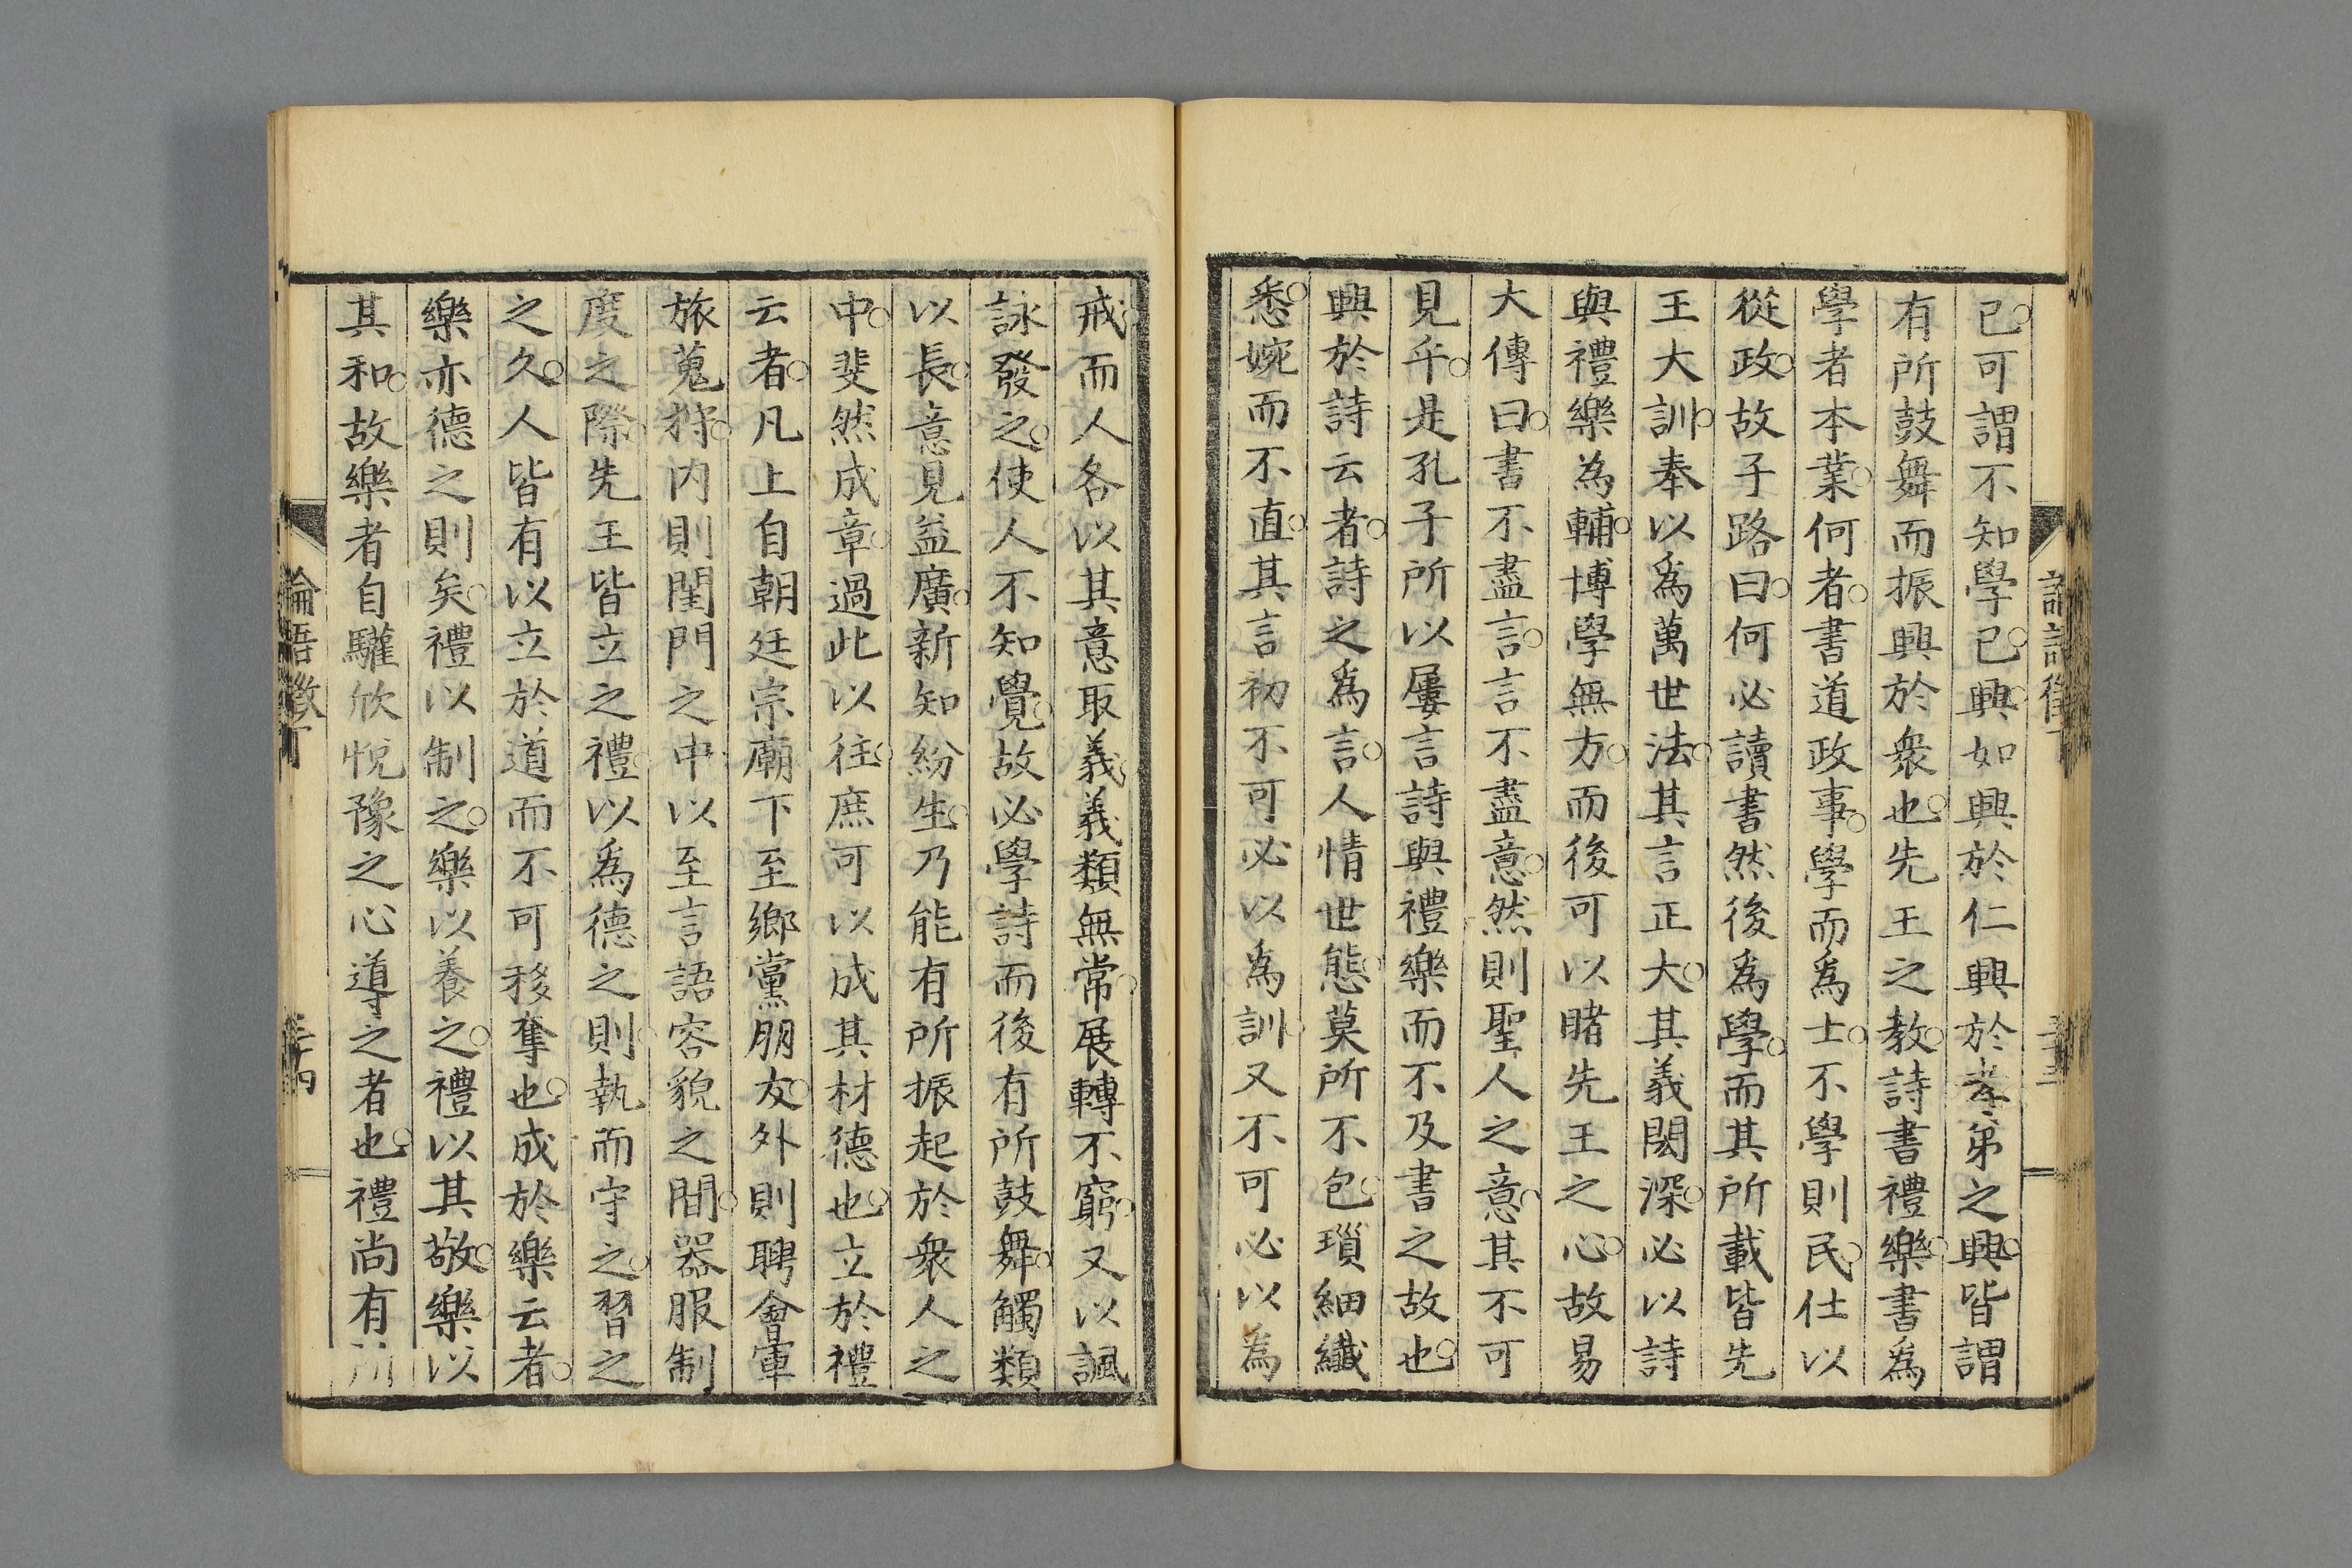 已可謂不知學已興如興於仁興於孝弟之興皆謂
有所鼓舞而振興於衆也先王之教詩書禮樂書為
學者本業何者書道政事學而為士不學則民仕以
從政故子路曰何必讀書然後為學而其所載皆先
王大訓奉以爲萬世法其言正大其義閎深必以詩
與禮樂為輔博學無方而後可以睹先王之心故易
大傳曰書不盡言言不盡意然則聖人之意其不可
見乎是孔子所以屢言詩與禮樂而不及書之故也
興於詩云者詩之爲言人情世態莫所不包瑣細纖
悉婉而不直其言初不可必以爲訓又不可必以為
戒而人各以其意取義義類無常展轉不窮又以諷
詠發之使人不知覺故必學詩而後有所鼓舞觸類
以長意見益廣新知紛生乃能有所振起於衆人之
中斐然成章過此以往庶可以成其材德也立於禮
云者凡上自朝廷宗廟下至鄉黨朋友外則聘會軍
旅蒐狩内則閨門之中以至言語容貌之間器服制
度之際先王皆立之禮以爲德之則執而守之習之
之久人皆有以立於道而不可移奪也成於樂云者
樂亦德之則矣禮以制之樂以養之禮以其敬樂以
其和故樂者自驩欣悅豫之心導之者也禮尚有所
論語徵丁
三十四